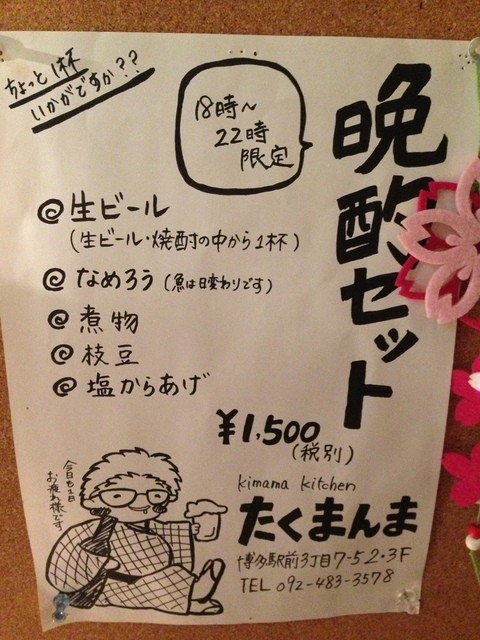 ちょっと1杯
いかがですか??
18時〜
22時
限定
晩酌セット
@生ビール
(生ビール・焼酎の中から1杯)
@なめろう(魚は日変わりです)
@煮物
@枝豆
@塩からあげ
¥1,500
(税別)
今日も1日
お疲れ様です
kimama kitchen
たくまんま
博多駅前3丁目7-52・3F
TEL 092-483-3578